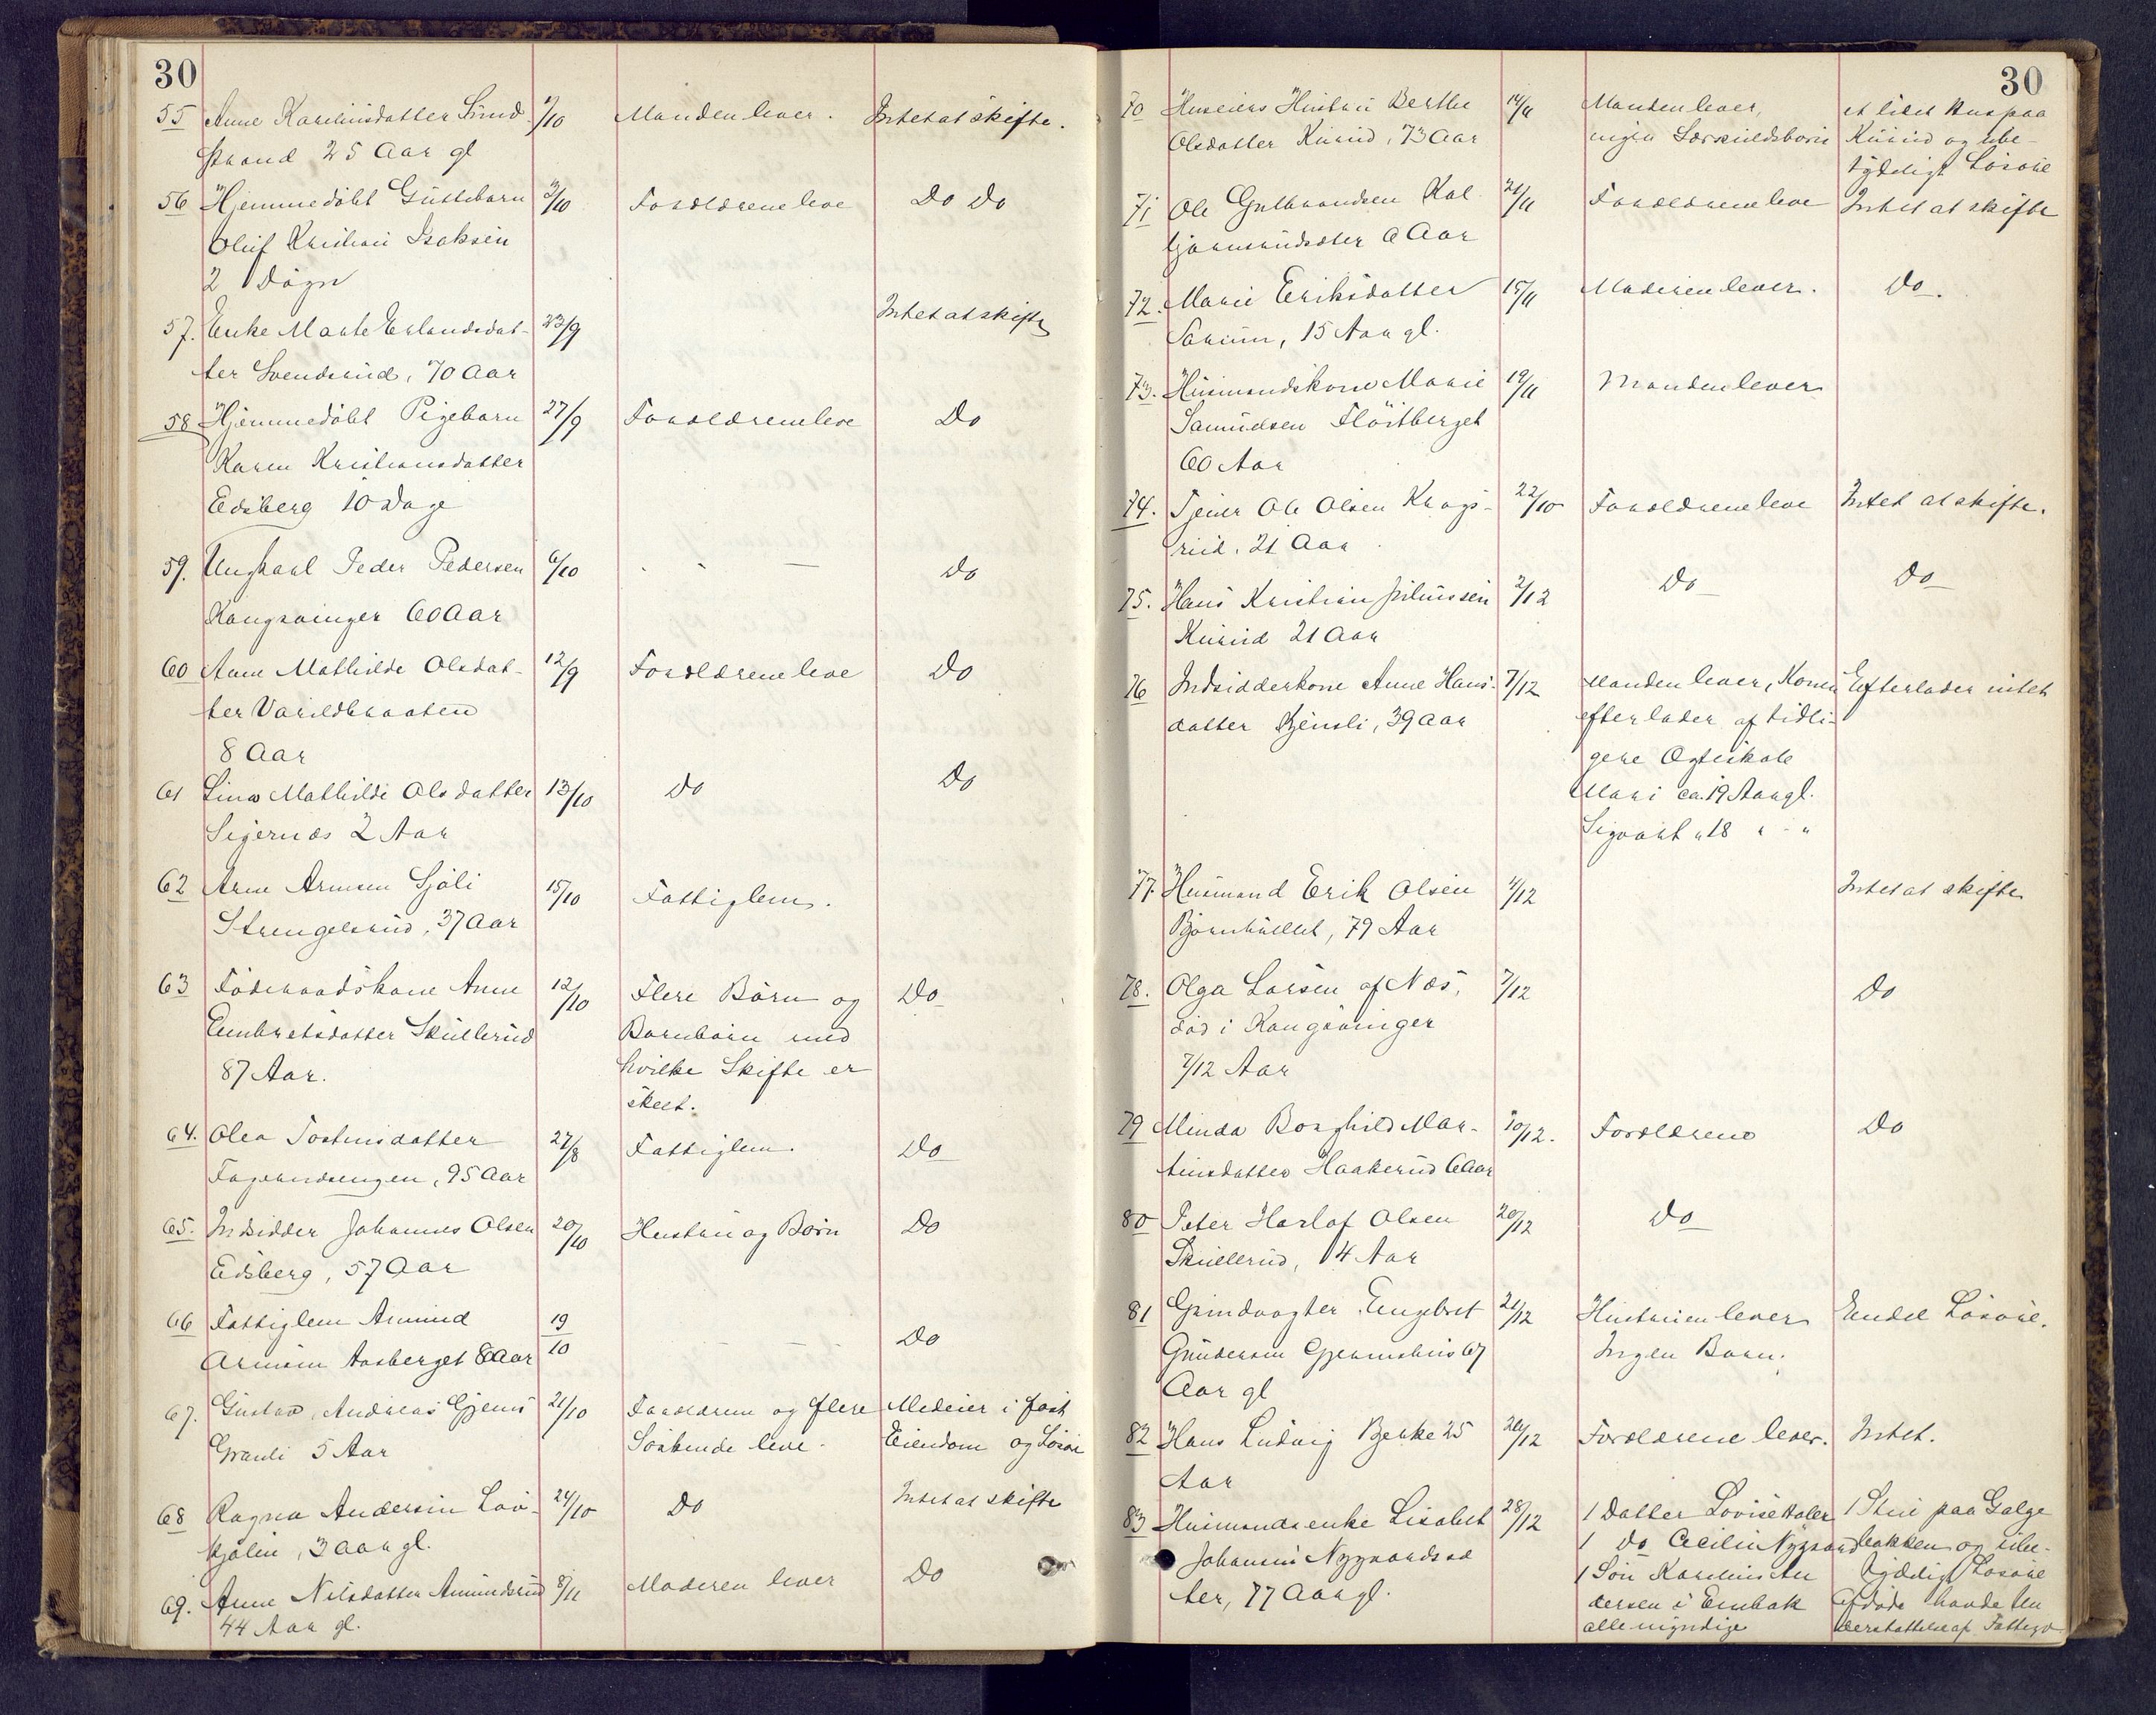 30
55 Anne Karelinsdatter Sund- 1/10 Manden lever. Intet at skifte.
strand 25 Aar gl
56 Hjemmedøbt Guttebarn 3/10 Forældrene leve Do Do
Oluf Kristian Isaksen
2 Døgn
57. Enke Marte Erlandsdat- 23/9 Intet at skifte
ter Svendsrud, 70 Aar
58 Hjemmedøbt Pigebarn 27/9 Forældrene leve Do
Karen Kristiansdatter
Edsberg 10 Dage
59. Ungkarl Peder Pedersen 6/10 Do
Kongsvinger 60 Aar
60 Anne Mathilde Olsdat- 12/9 Forældrene leve Do
ter Varildbraaten
8 Aar
61 Lina Mathilde Olsdatter 13/10 Do Do
Sigernæs 2 Aar
62 Arne Arnesen Sjøli 15/10 Fattiglem.
Strengelsrud, 37 Aar
63 Føderaadskone Anne 12/10 Flere Børn og Do
Embretsdatter Skullerud Barnbørn med
87 Aar. hvilke Skifte er
skeet.
64. Olea Tostensdatter 27/8 Fattiglem. Do
95 Aar
65. Indsidder Johannes Olsen 20/10 Hustru og Børn Do
Edsberg, 57 Aar
66 Fattiglem Amund 19/10 Do
Arnesen Aasberget 80 Aar
67. Gustav Andreas Gjems 21/10 Forældrene og flere Medeier i fast
Granli 5 Aar Søskende leve. Eiendom og Løsøre
68 Ragna Andersen Løv- 24/10 Do Intet at skifte
hjølen, 3 Aar gl.
69. Anne Nilsdatter Amundsrud 8/11 Moderen lever Do
44 Aar gl.
30
70 Huseiers Hustru Berthe 14/11 Manden lever, et lidet Hus paa
Olsdatter Kurud, 73 Aar ingen Særkuldsbørn Kurud og ube-
tydeligt Løsøre
71 Ole Gulbrandsen Kol- 21/11 Forældrene leve Intet at skifte
bjørnsrudsæter 6 Aar
72. Marie Eriksdatter 15/11 Moderen lever. Do.
15 Aar gl.
73. Husmandskone Marie 19/11 Manden lever
Samuelsen Fløitberget
60 Aar
74. Tjener Ole Olsen Krogs- 22/10 Forældrene leve Intet at skifte.
rud, 21 Aar
75. Hans Kristian Juliussen 2/12 Do Do
Kurud 21 Aar
76 Indsidderkone Anne Hans- 7/12 Manden lever, Konen Efterlader intet
datter 39 Aar efterlader af tidli-
gere Ægteskab
Mari ca. 19 Aar gl.
Sigvart " 18 " - "
77. Husmand Erik Olsen 4/12 Intet at skifte
Bjørnhullet, 79 Aar
78. Olga Larsen af Næs, 7/12 Do
død i Kongsvinger
7/12 Aar
79 Minda Borghild Mar- 10/12. Forældrene Do
tinsdatter Haakerud 6 Aar
80 Peter Harlaf Olsen 20/12 Do
Skullerud, 14 Aar
81 Grindvogter Engebret 21/12 Hustruen lever Endel Løsøre.
Gundersen Gjermshus 67 Ingen Børn.
Aar gl
82 Hans Ludvig Bekke 25 26/12 Forældrene lever. Intet.
Aar
83 Husmandsenke Lisabet 28/12 1 Datter Lovise Haler 1 Stue paa Galge-
Johansen Nygaardsæ- 1 Do Cecilie Nygaard bakken og ube-
ter, 77 Aar gl. 1 Søn Karelius An- tydeligt Løsøre
dersen i Eidsbak Afdøde havde Un-
alle myndige derstøttelse af Fattigv.